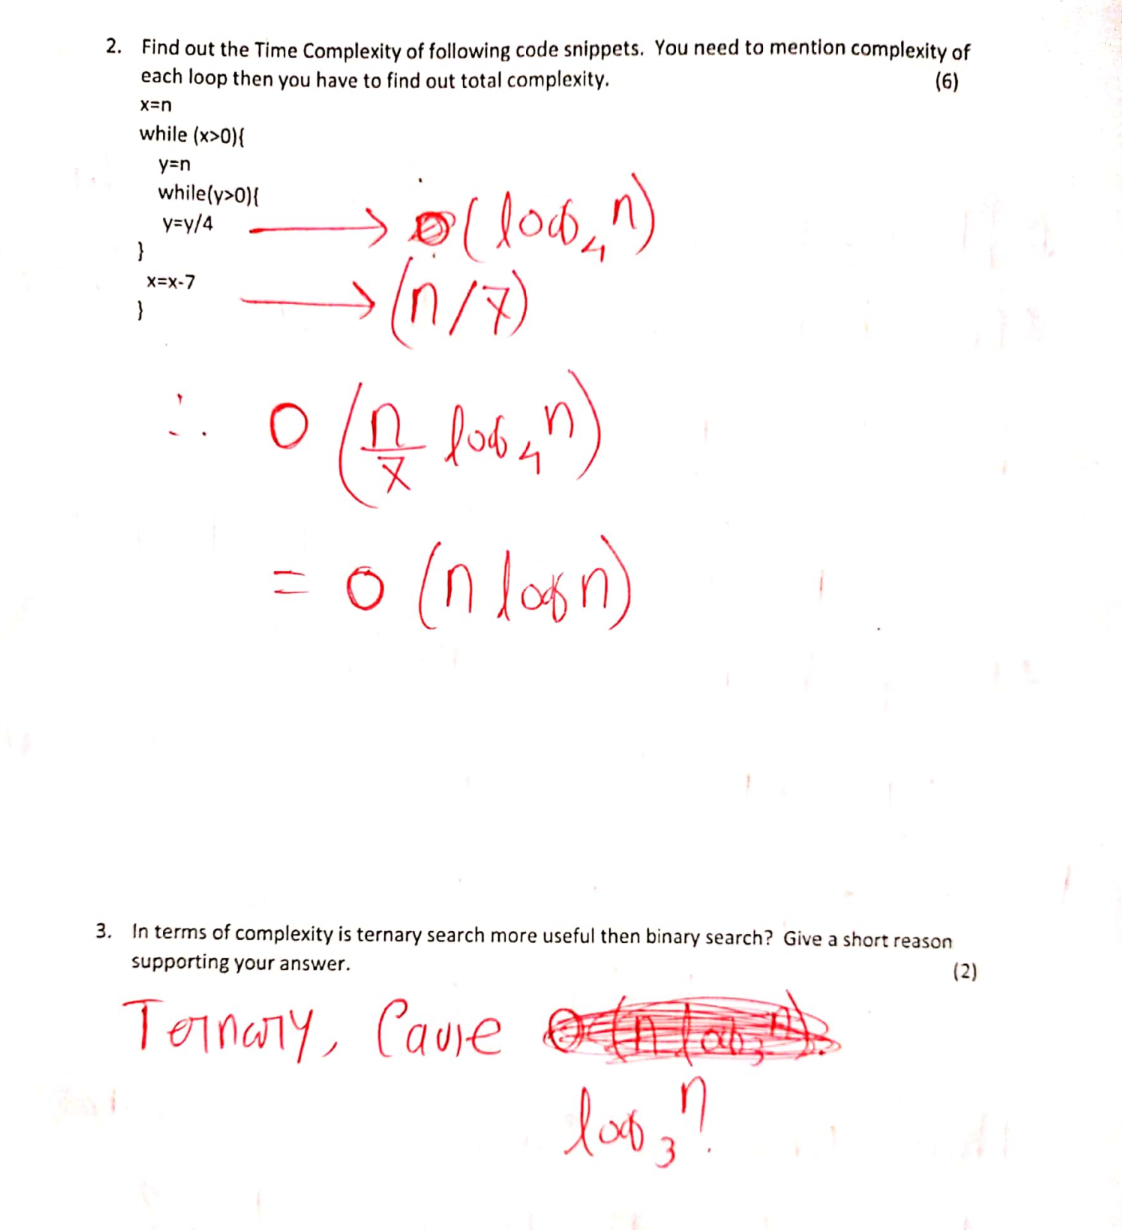 2. Find out the Time Complexity of following code snippets. You need to mention complexity of
each loop then you have to find out total complexity. (6)
x=n
while (x>0){
y=n
while(y>0){
y=y/4 → O(log₄n)
}
x=x-7 → (n/7)
}
∴ O (n/7 log₄n)
= O (n logn)
3. In terms of complexity is ternary search more useful then binary search? Give a short reason
supporting your answer. (2)
Ternary, Cause
log₃n.